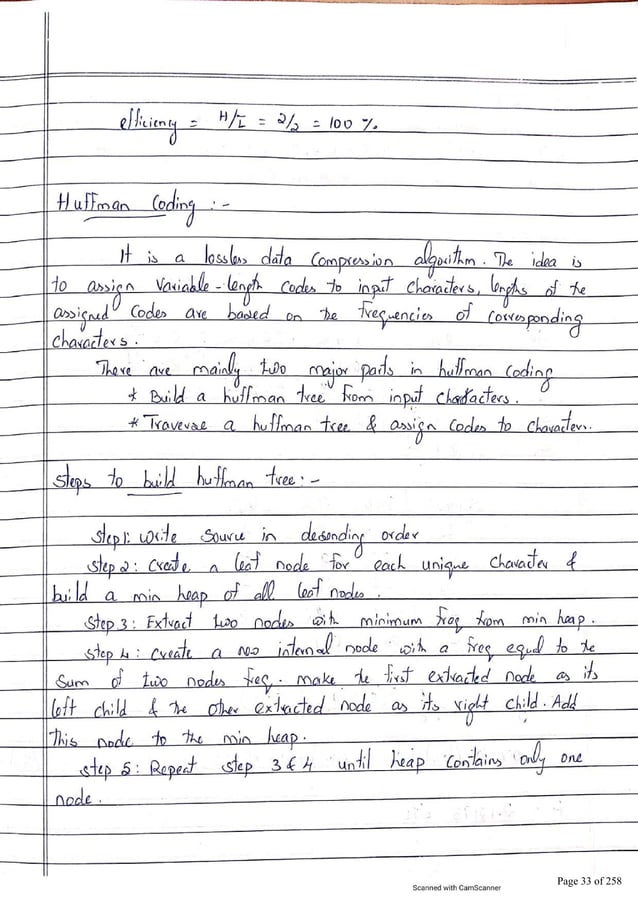 efficiency = H/L̄ = 2/2 = 100 %.
Huffman Coding :-
It is a lossless data compression algorithm. The idea is
to assign variable-length codes to input characters, lengths of the
assigned codes are based on the frequencies of corresponding
characters.
There are mainly two major parts in huffman coding
* Build a huffman tree from input characters.
* Traverse a huffman tree & assign codes to characters.
Steps to build huffman tree:-
Step1: Write source in desending order
Step 2: Create a leaf node for each unique character &
build a min heap of all leaf nodes.
Step 3: Extract two nodes with minimum freq from min heap.
Step 4: Create a new internal node with a freq equal to the
sum of two nodes freq. make the first extracted node as its
left child & the other extracted node as its right child. Add
This node to the min heap.
step 5: Repeat step 3 & 4 until heap contains only one
node.
Page 33 of 258
Scanned with CamScanner